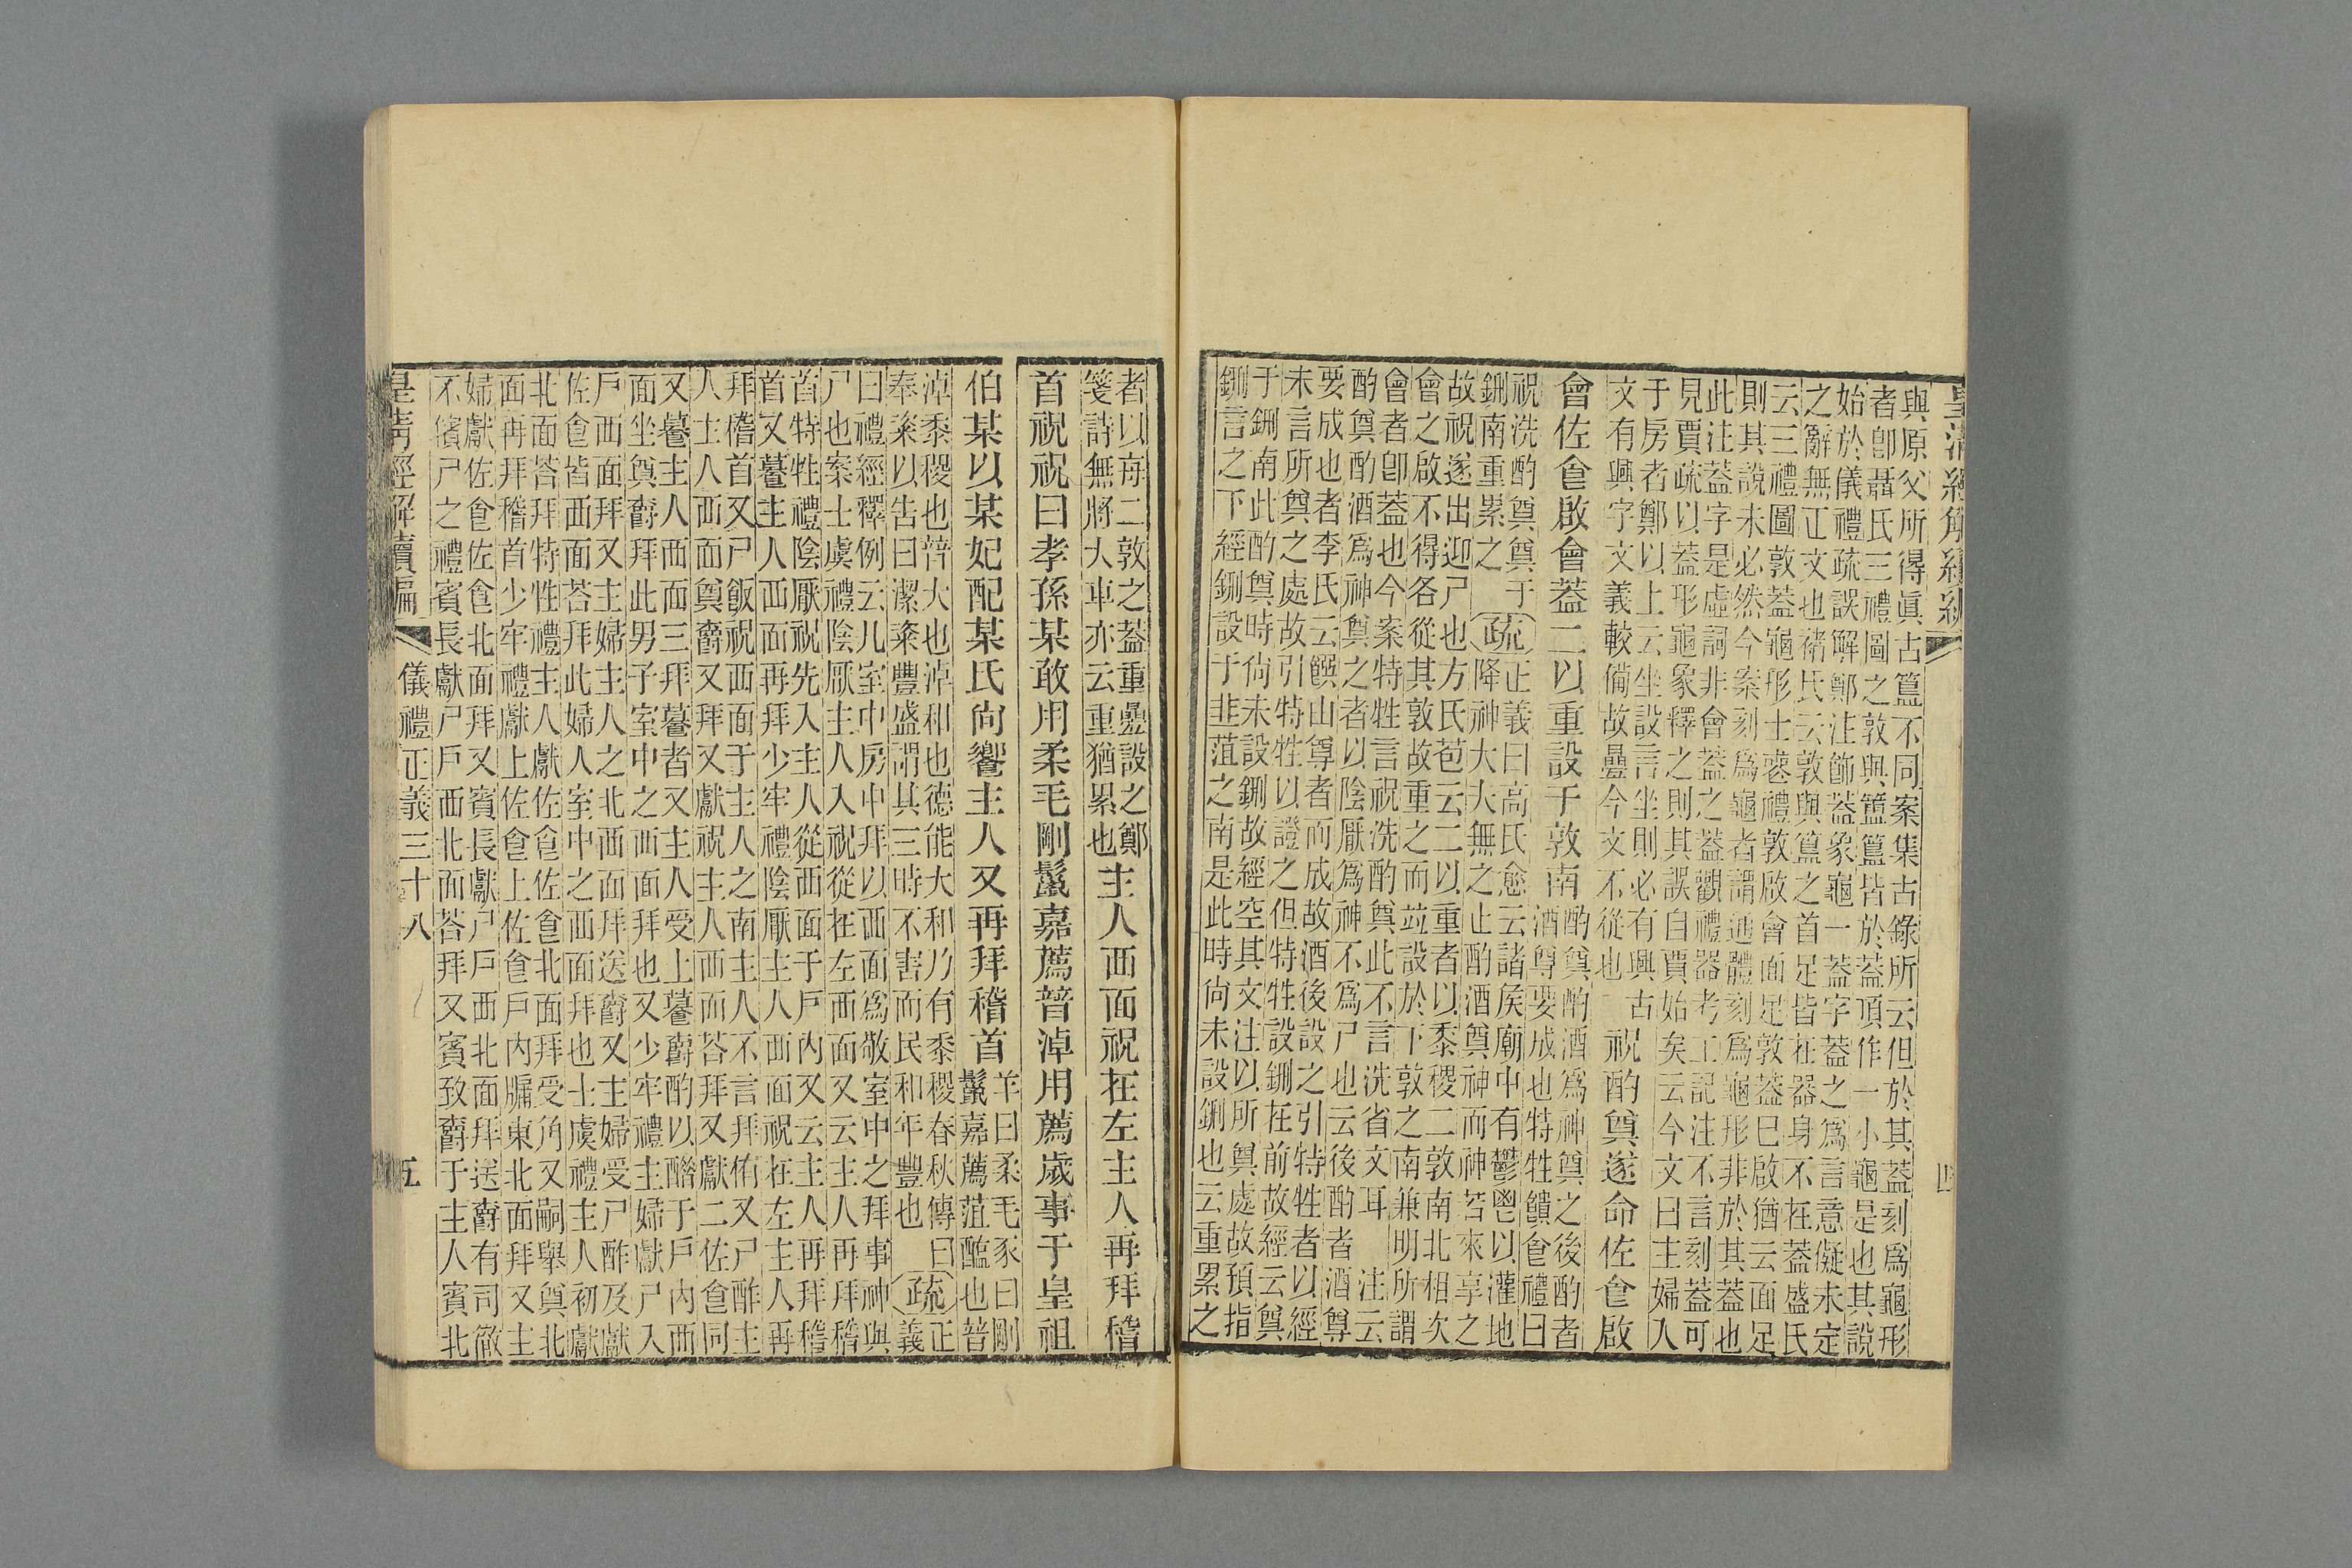 皇清經解續編 四
與原父所得眞古簋不同案集古錄所云但於其蓋刻爲龜形
者卽聶氏三禮圖之敦與簠簋皆於蓋頂作一小龜是也其說
始於儀禮疏誤解鄭注飾蓋象龜一蓋字蓋之爲言意儗未定
之辭無正文也褚氏云敦與簋之首足皆在器身不在蓋盛氏
云三禮圖敦蓋龜形士喪禮敦啟會面足敦蓋巳啟猶云面足
則其說未必然今案刻爲龜者謂通體刻爲龜形非於其蓋也
此注蓋字是虛詞非會蓋之蓋觀禮器考工記注不言刻蓋可
見賈疏以蓋形龜象釋之則其誤自賈始矣云今文曰主婦入
于房者鄭以上云坐設言坐則必有興古
文有興字文義較備故疊今文不從也
祝酌奠遂命佐食啟
會佐食啟會蓋二以重設于敦南
酌奠酌酒爲神奠之後酌者
酒尊要成也特牲饋食禮曰
祝洗酌奠奠于
鉶南重累之
疏
正義曰高氏愈云諸侯廟中有鬱鬯以灌地
降神大夫無之止酌酒奠神而神若來享之
故祝遂出迎尸也方氏苞云二以重者以黍稷二敦南北相次
會之啟不得各從其敦故重之而竝設於下敦之南兼明所謂
會者卽蓋也今案特牲言祝洗酌奠此不言洗省文耳 注云
酌奠酌酒爲神奠之者以陰厭爲神不爲尸也云後酌者酒尊
要成也者李氏云饌山尊者而成故酒後設之引特牲者以經
未言所奠之處故引特牲以證之但特牲設鉶在前故經云奠
于鉶南此酌奠時尙未設鉶故經空其文注以所奠處故預指
鉶言之下經鉶設于韭菹之南是此時尙未設鉶也云重累之
者以兩二敦之蓋重疊設之鄭
箋詩無將大車亦云重猶累也
主人西面祝在左主人再拜稽
首祝祝曰孝孫某敢用柔毛剛鬣嘉薦普淖用薦歲事于皇祖
伯某以某妃配某氏尙饗主人又再拜稽首
羊曰柔毛豕曰剛
鬣嘉薦菹醢也普
淖黍稷也普大也淖和也德能大和乃有黍稷春秋傳曰
奉粢以告曰潔粢豐盛謂其三時不害而民和年豐也
疏
正
義
曰禮經釋例云凡室中房中拜以西面爲敬室中之拜事神與
尸也案士虞禮陰厭主人入祝從在左西面又云主人再拜稽
首特牲禮陰厭祝先入主人從西面于戶內又云主人再拜稽
首又養主人西面再拜少牢禮陰厭主人西面祝在左主人再
拜稽首又尸飯祝西面于主人之南主人不言拜侑又尸酢主
人主人西面奠爵又拜又獻祝主人西面荅拜又獻二佐食同
又養主人西面三拜養者又主人受上養爵酌以酳于戶內西
面坐奠爵拜此男子室中之西面拜也又少牢禮主婦獻尸入
戶西面拜又主婦主人之北西面拜送爵又主婦受尸酢及獻
佐食皆西面荅拜此婦人室中之西面拜也士虞禮主人初獻
北面荅拜特牲禮主人獻佐食佐食北面拜受角又嗣舉奠北
面再拜稽首少牢禮獻上佐食上佐食戶內牖東北面拜又主
婦獻佐食佐食北面拜又賓長獻尸尸西北面拜送爵有司徹
不儐尸之禮賓長獻尸戶西北面荅拜又賓致爵于主人賓北
皇清經解續編 儀禮正義三十八 五